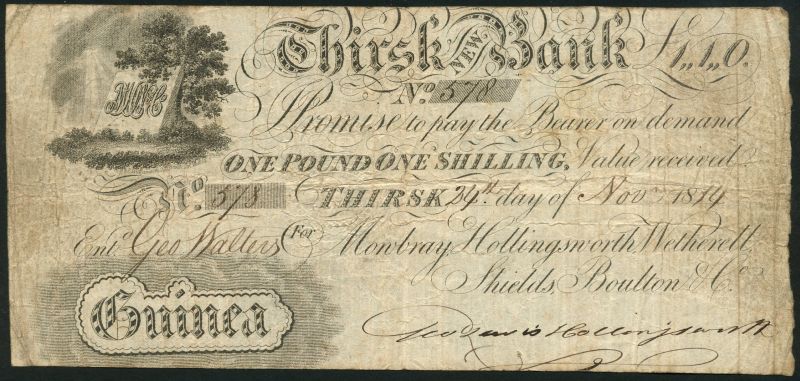 Thirsk NEW Bank £1,,1,,0.
No. 578
I Promise to pay the Bearer on demand
ONE POUND ONE SHILLING, Value received
No. 578 THIRSK 24th. day of Novr 1814
Entd. Geo Walters For Mowbray, Hollingsworth, Wetherell,
Shields, Boulton & Co.
Guinea
Hollingsworth